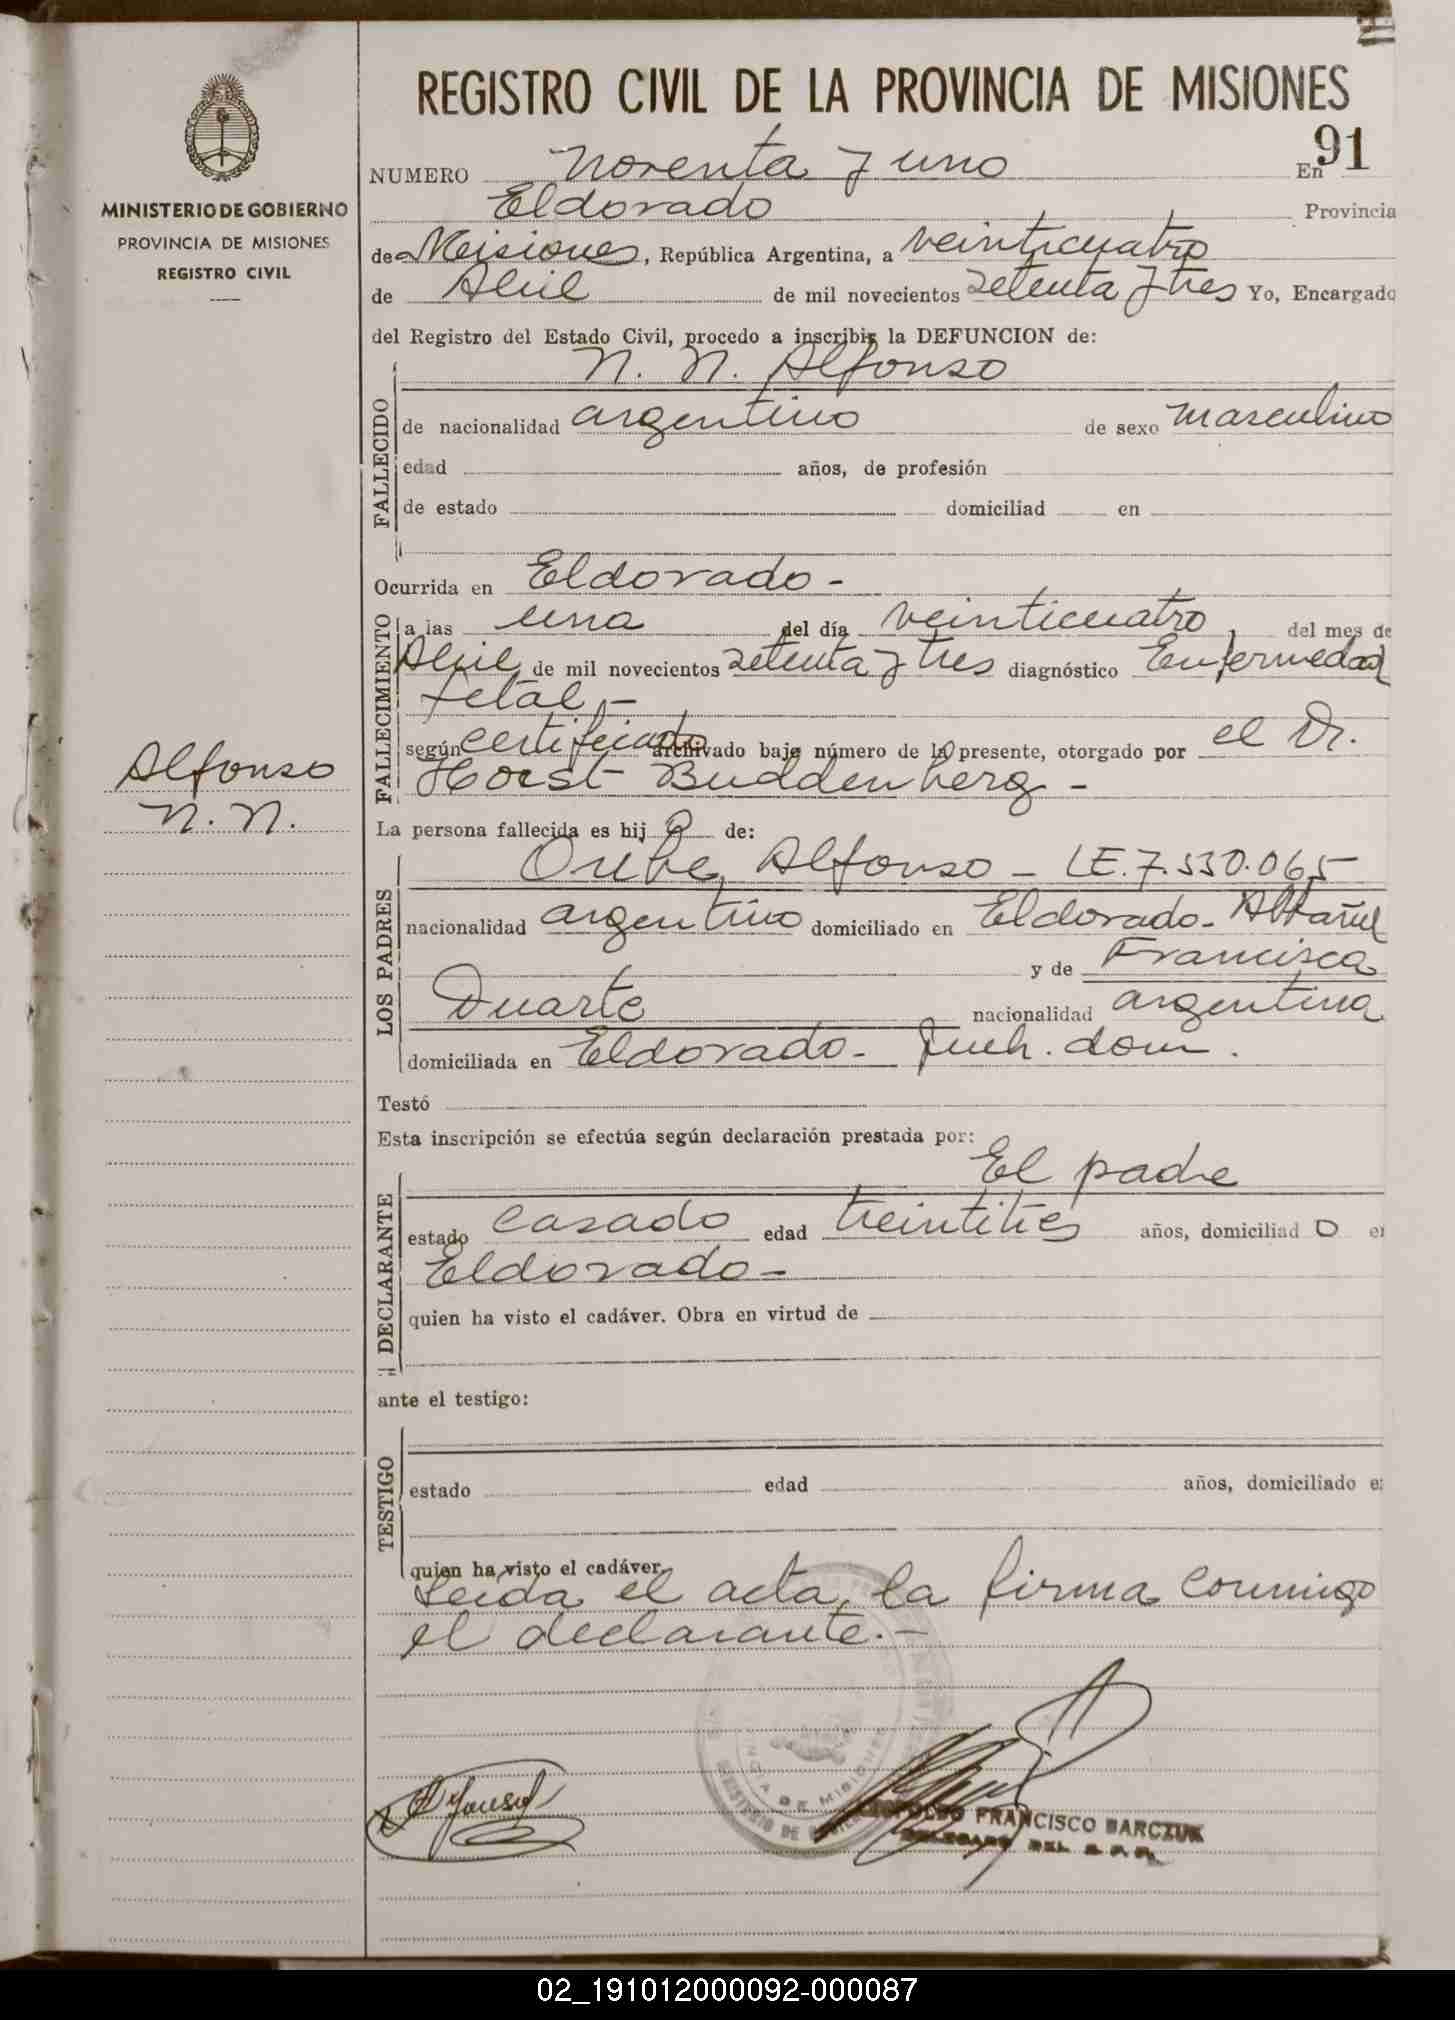 REGISTRO CIVIL DE LA PROVINCIA DE MISIONES
91
NUMERO Noventa y uno En
Eldorado Provincia
de Misiones, República Argentina, a veinticuatro
de Abril de mil novecientos setenta y tres Yo, Encargado
del Registro del Estado Civil, procedo a inscribir la DEFUNCION de:
N. N. Alfonso
FALLECIDO
de nacionalidad argentino de sexo masculino
edad años, de profesión
de estado domiciliad en
Ocurrida en Eldorado-
FALLECIMIENTO
a las una del día veinticuatro, del mes de
Abril de mil novecientos setenta y tres diagnóstico Enfermedad
fetal.-
según certificado archivado bajo número de la presente, otorgado por el Dr.
Horst Buddenberg-
La persona fallecida es hij o de:
LOS PADRES
Oribe, Alfonso - LE.7.530.065
nacionalidad argentino domiciliado en Eldorado- Albañil
y de Francisca
Duarte nacionalidad argentina
domiciliada en Eldorado- dom.
Testó
Esta inscripción se efectúa según declaración prestada por:
El padre
DECLARANTE
estado casado edad treintitrés años, domiciliad o en
Eldorado-
quien ha visto el cadáver. Obra en virtud de
ante el testigo:
TESTIGO
estado edad años, domiciliado e
quien ha visto el cadáver.
Leída el acta, la firma conmigo
el declarante.-
FRANCISCO BARCZUK
DELEGADO DEL
MINISTERIO DE GOBIERNO
PROVINCIA DE MISIONES
REGISTRO CIVIL
Alfonso
N. N.
02_191012000092-000087